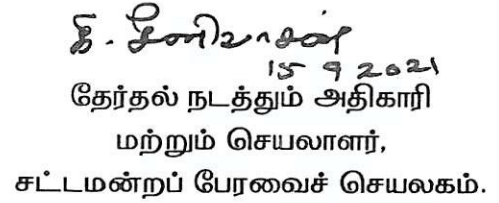 கி. சீனிவாசன்
15 9 2021
தேர்தல் நடத்தும் அதிகாரி
மற்றும் செயலாளர்,
சட்டமன்றப் பேரவைச் செயலகம்.